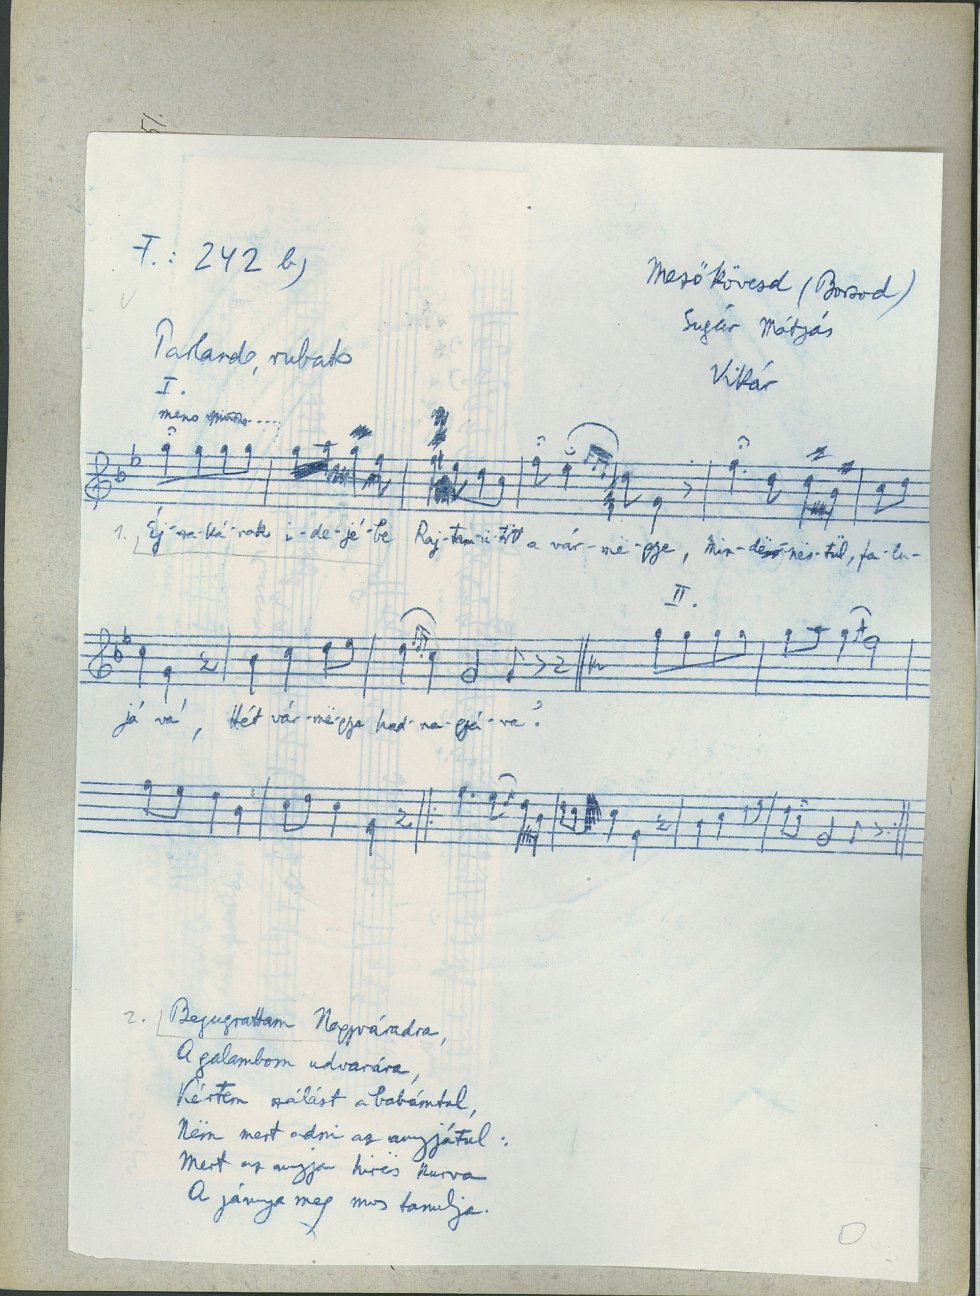 F.: 242 b)
Mezőkövesd (Borsod)
Sugár Mátyás
Vikár
Parlando, rubato
I.
meno mosso....
1. Éj-na-ká-nak i-de-jé-be Raj-tam-ü-tött a vár-më-gye, Min-dën-nës-tül, fa-lu-
II.
já vá', Hét vár-më-gye had-na-gyá-va'.
2. Beugrattam Nagyváradra,
A galambom udvarára,
Kértem szálást a babámtul,
Nëm mert adni az anyjátul:
Mert az anyja hirës kurva
A jánya meg mos tanulja.